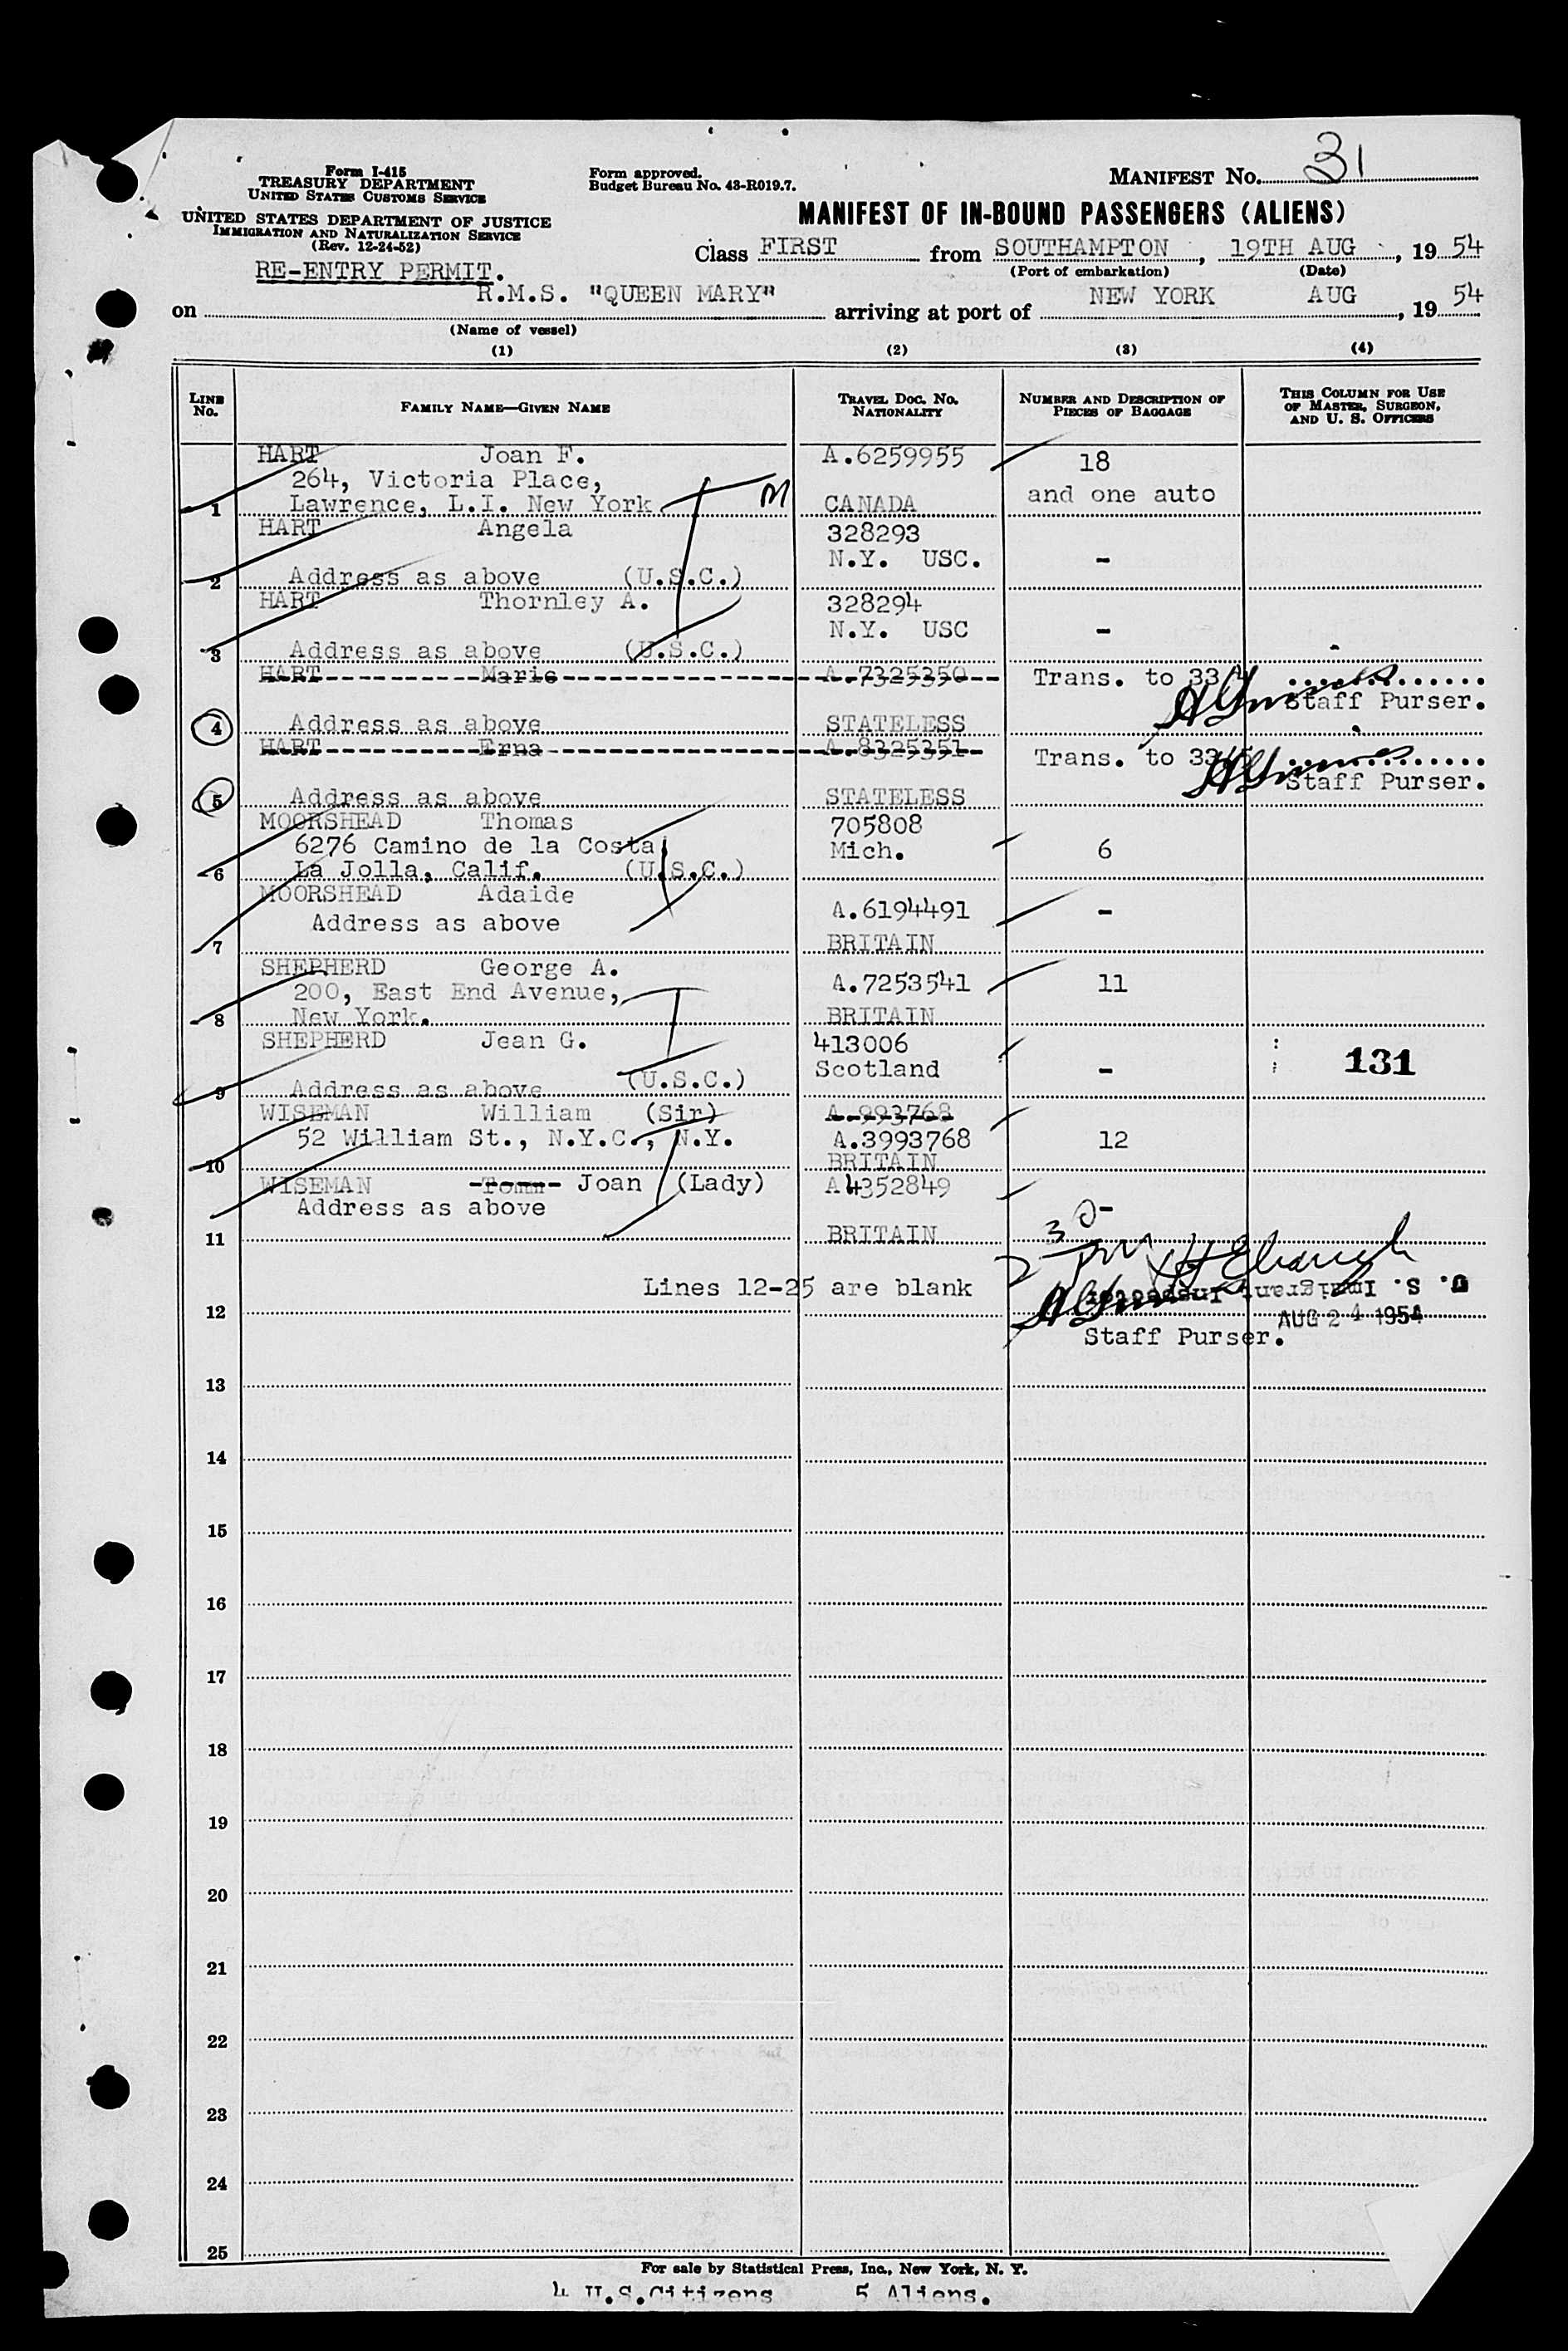 Form I-415
TREASURY DEPARTMENT
UNITED STATES CUSTOMS SERVICE
UNITED STATES DEPARTMENT OF JUSTICE
IMMIGRATION AND NATURALIZATION SERVICE
(Rev. 12-24-52)
RE-ENTRY PERMIT.
Form approved.
Budget Bureau No. 43-R019.7.
MANIFEST No. 31
MANIFEST OF IN-BOUND PASSENGERS (ALIENS)
Class FIRST from SOUTHAMPTON, 19TH AUG, 1954
(Port of embarkation) (Date)
on R.M.S. "QUEEN MARY" arriving at port of NEW YORK AUG, 1954
(Name of vessel)
(1) (2) (3) (4)
LINE No. FAMILY NAME—GIVEN NAME TRAVEL DOC. NO. NATIONALITY NUMBER AND DESCRIPTION OF PIECES OF BAGGAGE THIS COLUMN FOR USE OF MASTER, SURGEON, AND U. S. OFFICERS
HART Joan F. A.6259955 18
264, Victoria Place,
and one auto
1 Lawrence, L.I. New York M CANADA
HART Angela 328293
N.Y. USC. -
2 Address as above (U.S.C.)
HART Thornley A. 328294
N.Y. USC -
3 Address as above (U.S.C.)
HART Marie A.7325350 Trans. to 33/4
Staff Purser.
4 Address as above STATELESS
HART Erna A.8325351 Trans. to 33/5
Staff Purser.
5 Address as above STATELESS
MOORSHEAD Thomas 705808
6276 Camino de la Costa, Mich. 6
6 La Jolla, Calif. (U.S.C.)
MOORSHEAD Adaide
Address as above A.6194491 -
7 BRITAIN
SHEPHERD George A.
200, East End Avenue, A.7253541 11
8 New York. BRITAIN
SHEPHERD Jean G. 413006
Scotland - 131
9 Address as above (U.S.C.)
WISEMAN William (Sir) A.993768
52 William St., N.Y.C., N.Y. A.3993768 12
10 BRITAIN
WISEMAN Tomm Joan (Lady) A4352849
Address as above -
11 BRITAIN
2 30 PM
Lines 12-25 are blank
U. S. Immigrant Inspector
12 AUG 24 1954
Staff Purser.
13
14
15
16
17
18
19
20
21
22
23
24
25
For sale by Statistical Press, Inc., New York, N. Y.
4 U.S.Citizens 5 Aliens.